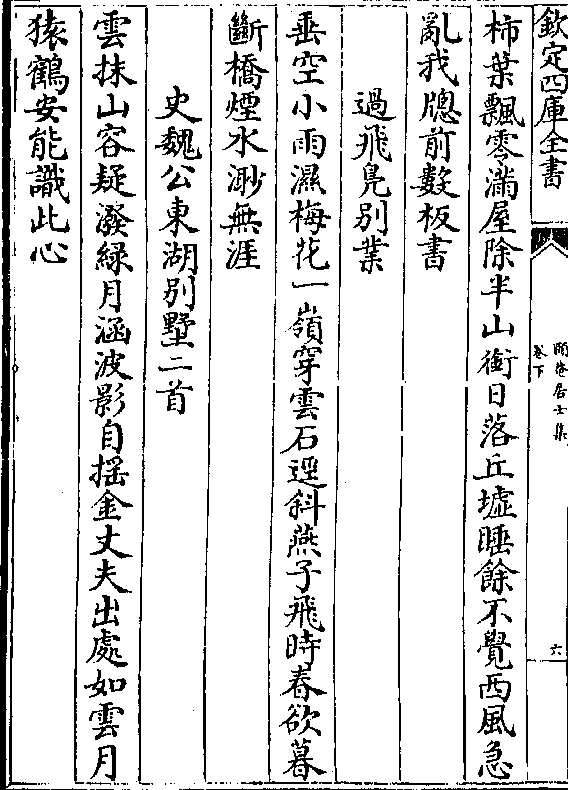 欽定四庫全書
頤菴居士集
卷下
六
柿葉飄零滿屋除半山銜日落丘墟睡餘不覺西風急
亂我牕前數板書
過飛鳧别業
垂空小雨濕梅花一嶺穿雲石逕斜燕子飛時春欲暮
斷橋煙水渺無涯
史魏公東湖别墅二首
雲抹山容疑潑緑月涵波影自揺金丈夫出處如雲月
猿鶴安能識此心